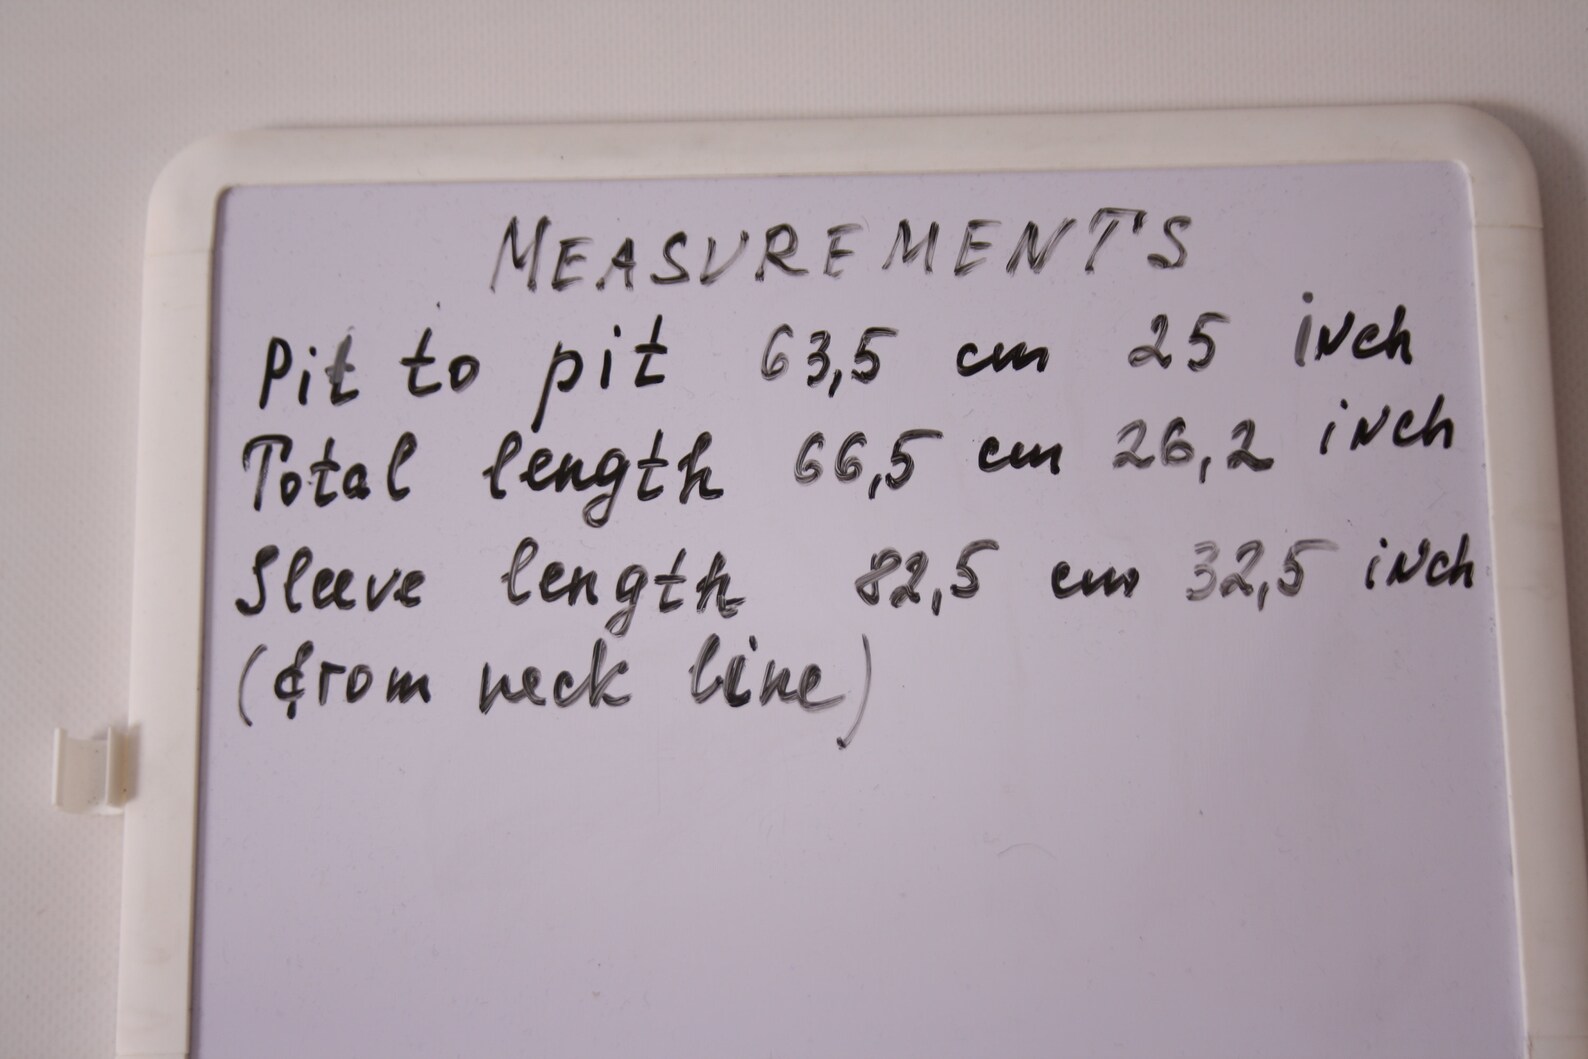 MEASUREMENTS
Pit to pit 63,5 cm 25 inch
Total length 66,5 cm 26,2 inch
Sleeve length 82,5 cm 32,5 inch
(from neck line)